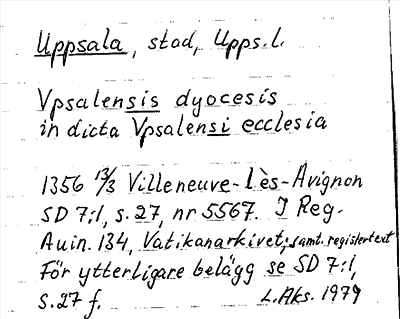 Uppsala, stad, Upps.l.
Vpsalensis dyocesis
in dicta Vpsalensi ecclesia
1356 13/3 Villeneuve-lès-Avignon
SD 7:1, s. 27, nr 5567. I Reg.
Auin. 134, Vatikanarkivet; saml. registertext
För ytterligare belägg se SD 7:1,
s. 27 f. L. Aks. 1979